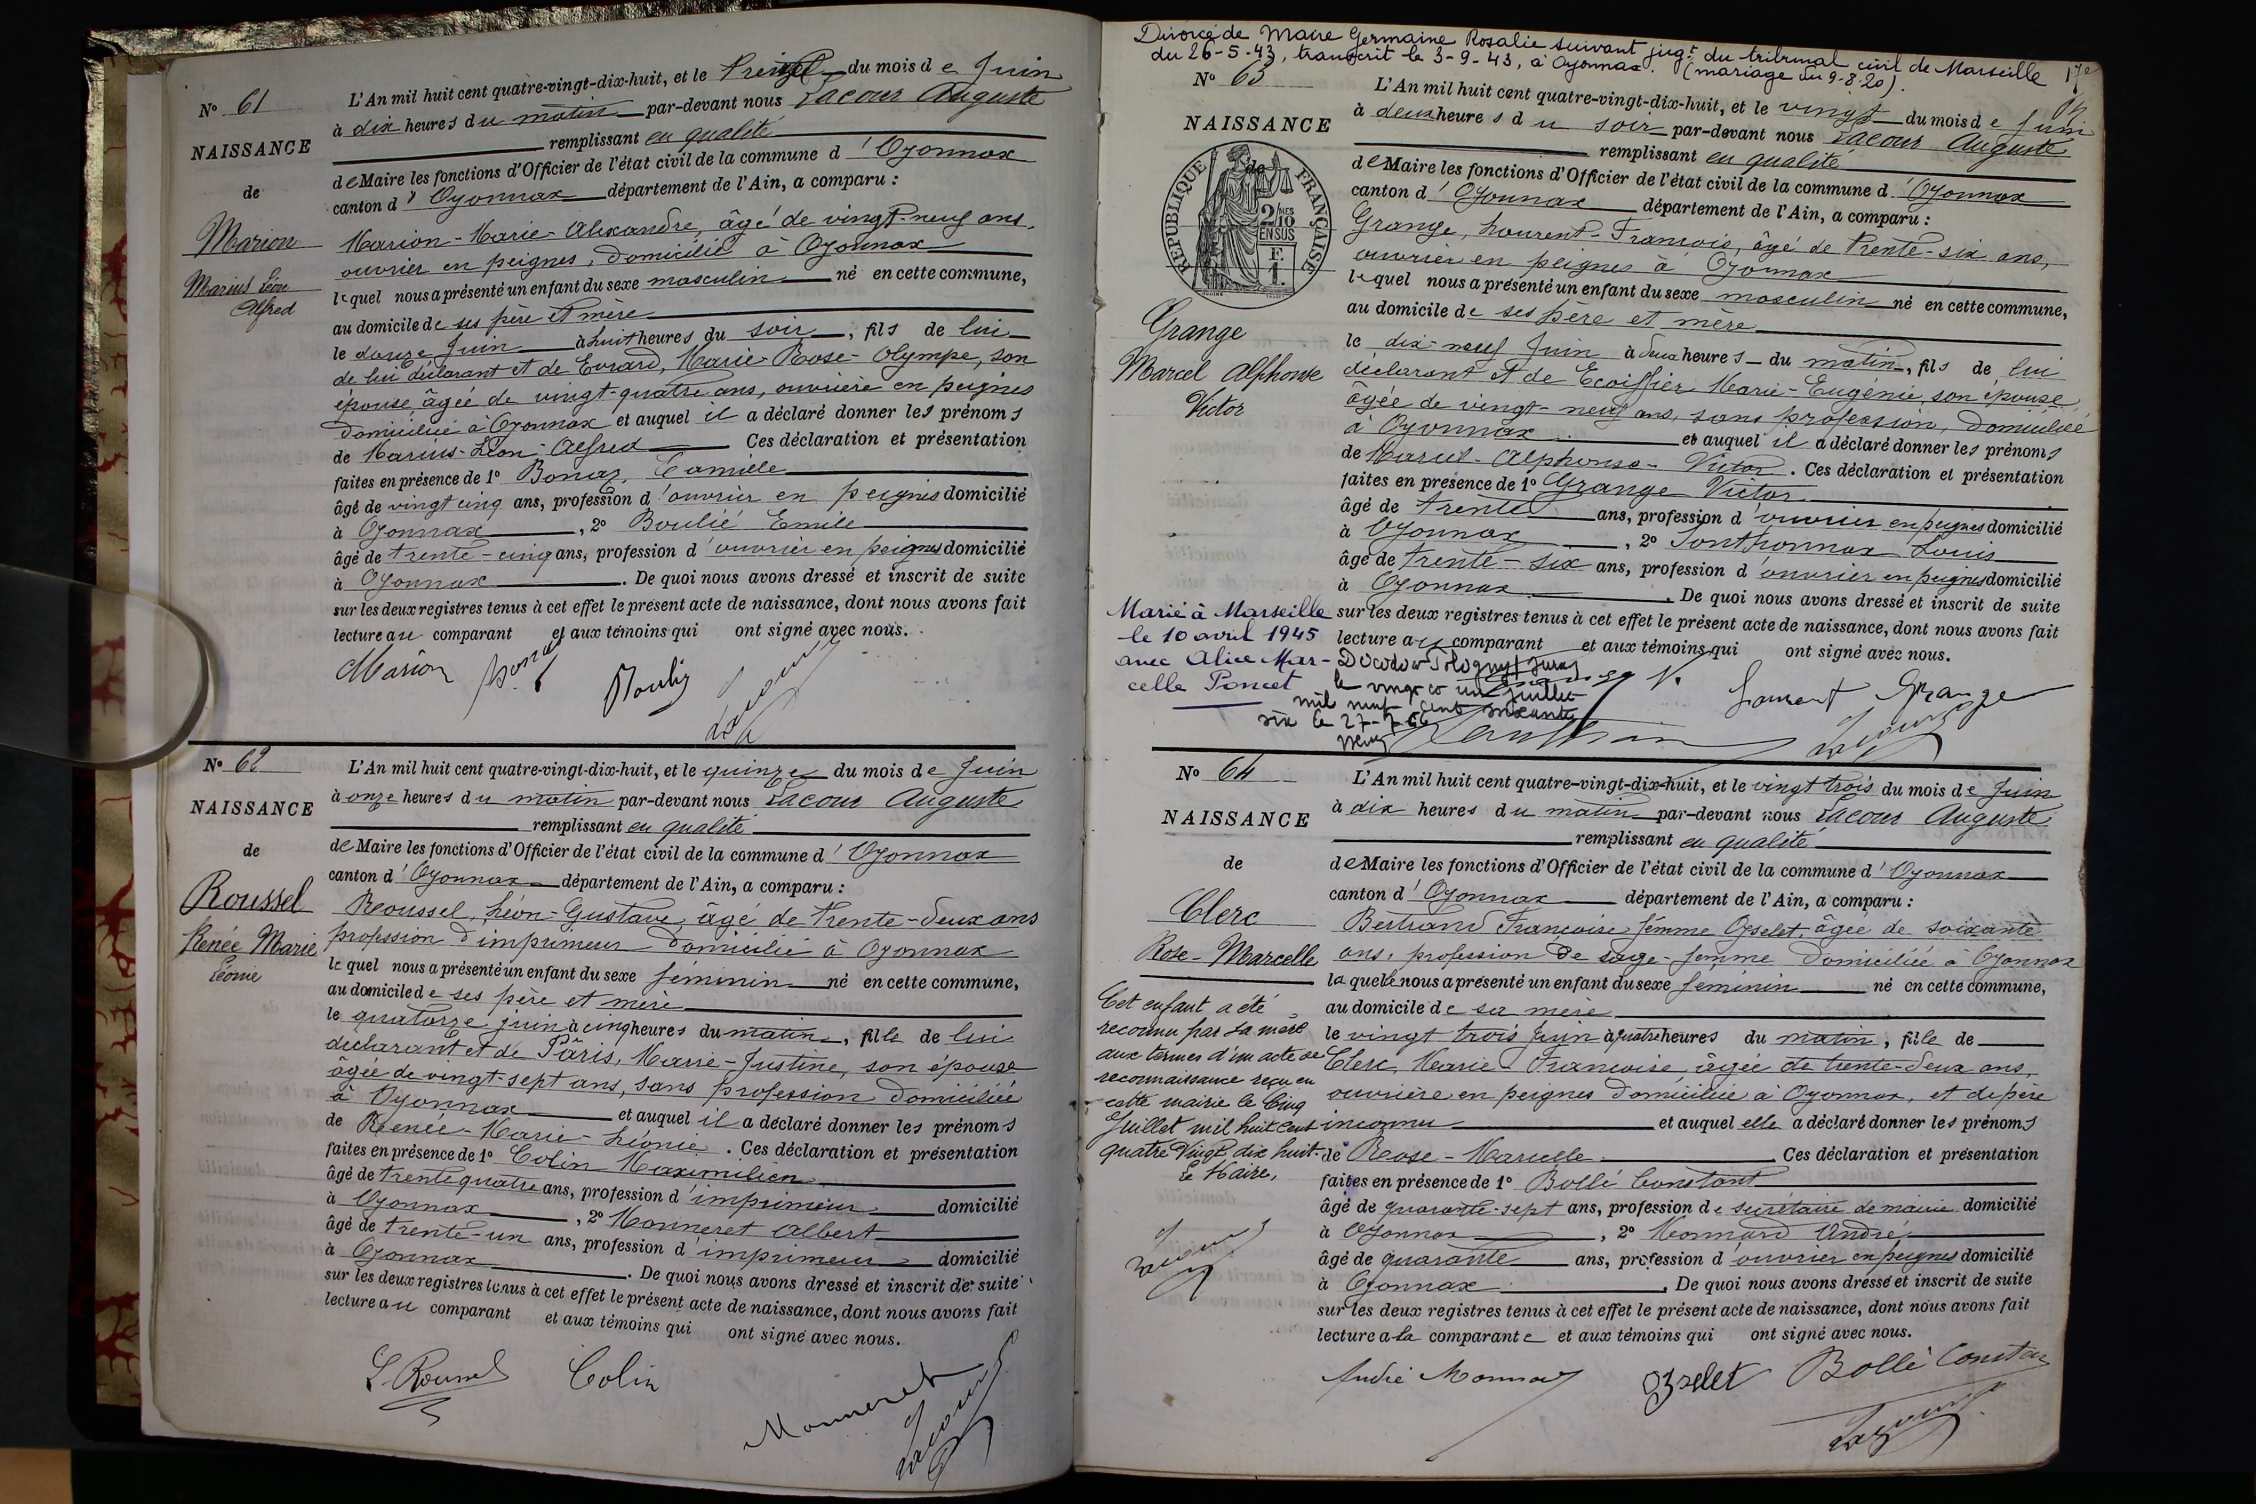 N° 61
NAISSANCE
de
Marion
Marius Léon
Alfred
L'An mil huit cent quatre-vingt-dix-huit, et le treize du mois de Juin
à dix heures du matin par-devant nous Lacour Auguste
remplissant en qualité
de Maire les fonctions d'Officier de l'état civil de la commune d'Oyonnax
canton d'Oyonnax département de l'Ain, a comparu :
Marion-Marie-Alexandre, âgé de vingt-neuf ans,
ouvrier en peignes, domicilié à Oyonnax
lequel nous a présenté un enfant du sexe masculin né en cette commune,
au domicile de ses père et mère
le douze Juin à huit heures du soir, fils de lui
de lui déclarant et de Evrard, Marie-Rose-Olympe, son
épouse, âgée de vingt-quatre ans, ouvrière en peignes
domiciliée à Oyonnax et auquel il a déclaré donner les prénoms
de Marius-Léon-Alfred Ces déclaration et présentation
faites en présence de 1° Bonaz, Camille
âgé de vingt cinq ans, profession d'ouvrier en peignes domicilié
à Oyonnax, 2° Boulié Emile
âgé de trente-cinq ans, profession d'ouvrier en peignes domicilié
à Oyonnax. De quoi nous avons dressé et inscrit de suite
sur les deux registres tenus à cet effet le présent acte de naissance, dont nous avons fait
lecture au comparant et aux témoins qui ont signé avec nous.
Marion Bonaz Boulié Lacour
N° 62
NAISSANCE
de
Roussel
Renée Marie
Léonie
L'An mil huit cent quatre-vingt-dix-huit, et le quinze du mois de Juin
à onze heures du matin par-devant nous Lacour Auguste
remplissant en qualité
de Maire les fonctions d'Officier de l'état civil de la commune d'Oyonnax
canton d'Oyonnax département de l'Ain, a comparu :
Roussel, Léon-Gustave, âgé de trente-deux ans
profession d'imprimeur domicilié à Oyonnax
lequel nous a présenté un enfant du sexe féminin né en cette commune,
au domicile de ses père et mère
le quatorze juin à cinq heures du matin, fille de lui
déclarant et de Pâris, Marie-Justine, son épouse
âgée de vingt-sept ans, sans profession domiciliée
à Oyonnax et auquel il a déclaré donner les prénoms
de Renée-Marie-Léonie. Ces déclaration et présentation
faites en présence de 1° Colin Maximilien
âgé de trente quatre ans, profession d'imprimeur domicilié
à Oyonnax, 2° Monneret Albert
âgé de trente-un ans, profession d'imprimeur domicilié
à Oyonnax. De quoi nous avons dressé et inscrit de suite
sur les deux registres tenus à cet effet le présent acte de naissance, dont nous avons fait
lecture au comparant et aux témoins qui ont signé avec nous.
L. Roussel Colin Monneret Lacour
Divorcé de Marie Germaine Rosalie suivant jugt du tribunal civil de Marseille
du 26-5-43, transcrit le 3-9-43, à Oyonnax. (mariage du 9-8-20).
17e
N° 63
NAISSANCE
de
REPUBLIQUE FRANÇAISE
2/10 EN SUS
F. 1.
Grange
Marcel Alphonse
Victor
L'An mil huit cent quatre-vingt-dix-huit, et le vingt du mois de Juin
à deux heures du soir par-devant nous Lacour Auguste
remplissant en qualité
de Maire les fonctions d'Officier de l'état civil de la commune d'Oyonnax
canton d'Oyonnax département de l'Ain, a comparu :
Grange, Laurent-François, âgé de trente-six ans,
ouvrier en peignes à Oyonnax
lequel nous a présenté un enfant du sexe masculin né en cette commune,
au domicile de ses père et mère
le dix-neuf Juin à deux heures du matin, fils de lui
déclarant et de Ecoiffier Marie-Eugénie, son épouse
âgée de vingt-neuf ans, sans profession, domiciliée
à Oyonnax et auquel il a déclaré donner les prénoms
de Marcel-Alphonse-Victor. Ces déclaration et présentation
faites en présence de 1° Grange Victor
âgé de trente ans, profession d'ouvrier en peignes domicilié
à Oyonnax, 2° Sonthonnax Louis
âgé de trente-six ans, profession d'ouvrier en peignes domicilié
à Oyonnax. De quoi nous avons dressé et inscrit de suite
sur les deux registres tenus à cet effet le présent acte de naissance, dont nous avons fait
lecture au comparant et aux témoins qui ont signé avec nous.
Marié à Marseille
le 10 avril 1945
avec Alice Mar-
celle Poncet
Décédé à Poligny (Jura)
le vingt et un juillet
mil neuf cent soixante
six le 27-7-66
Grange V. Laurent Grange
Sonthonnax Lacour
N° 64
NAISSANCE
de
Clerc
Rose-Marcelle
Cet enfant a été
reconnu par sa mère
aux termes d'un acte de
reconnaissance reçu en
cette mairie le Cinq
Juillet mil huit cent
quatre Vingt dix huit
Le Maire,
Lacour
L'An mil huit cent quatre-vingt-dix-huit, et le vingt trois du mois de Juin
à dix heures du matin par-devant nous Lacour Auguste
remplissant en qualité
de Maire les fonctions d'Officier de l'état civil de la commune d'Oyonnax
canton d'Oyonnax département de l'Ain, a comparu :
Bertrand Françoise femme Ozselet, âgée de soixante
ans, profession de sage-femme domiciliée à Oyonnax
laquelle nous a présenté un enfant du sexe féminin né en cette commune,
au domicile de sa mère
le vingt trois Juin à quatre heures du matin, fille de
Clerc, Marie Françoise âgée de trente-deux ans,
ouvrière en peignes domiciliée à Oyonnax, et de père
inconnu et auquel elle a déclaré donner les prénoms
de Rose-Marcelle. Ces déclaration et présentation
faites en présence de 1° Bollé Constant
âgé de quarante-sept ans, profession de secrétaire de mairie domicilié
à Oyonnax, 2° Monnard André
âgé de quarante ans, profession d'ouvrier en peignes domicilié
à Oyonnax. De quoi nous avons dressé et inscrit de suite
sur les deux registres tenus à cet effet le présent acte de naissance, dont nous avons fait
lecture a la comparante et aux témoins qui ont signé avec nous.
André Monnard Ozselet Bollé Constant
Lacour